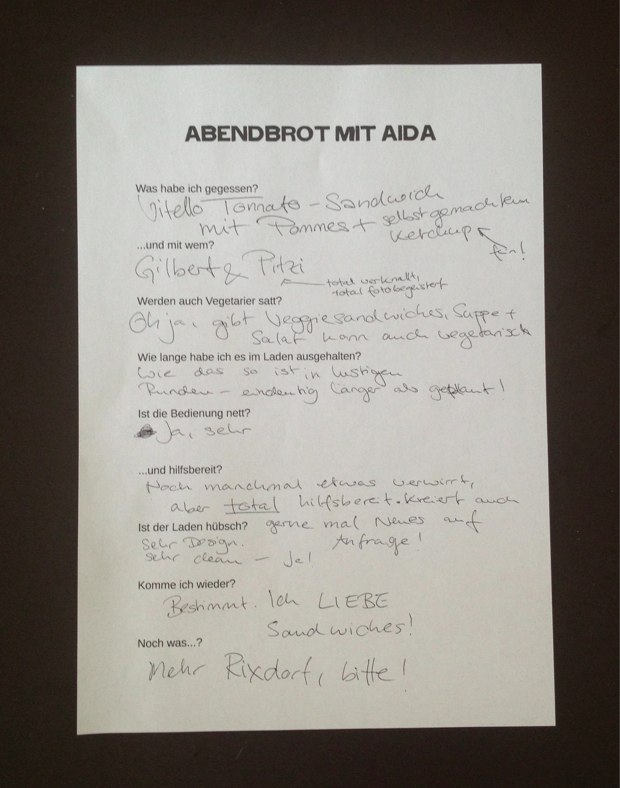 ABENDBROT MIT AIDA
Was habe ich gegessen?
Vitello Tonnato - Sandwich
mit Pommes + selbstgemachtem
Ketchup
fein!
...und mit wem?
Gilbert & Pitzi
total verknallt,
total fotobegeistert
Werden auch Vegetarier satt?
Oh ja, gibt Veggiesandwiches, Suppe +
Salat kann auch vegetarisch
Wie lange habe ich es im Laden ausgehalten?
Wie das so ist in lustigen
Runden - eindeutig länger als geplant!
Ist die Bedienung nett?
Ja, sehr
...und hilfsbereit?
Noch manchmal etwas verwirrt,
aber total hilfsbereit. Kreiert auch
gerne mal Neues auf
Anfrage!
Ist der Laden hübsch?
Sehr Design.
sehr clean - Ja!
Komme ich wieder?
Bestimmt. Ich LIEBE
Sandwiches!
Noch was...?
Mehr Rixdorf, bitte!